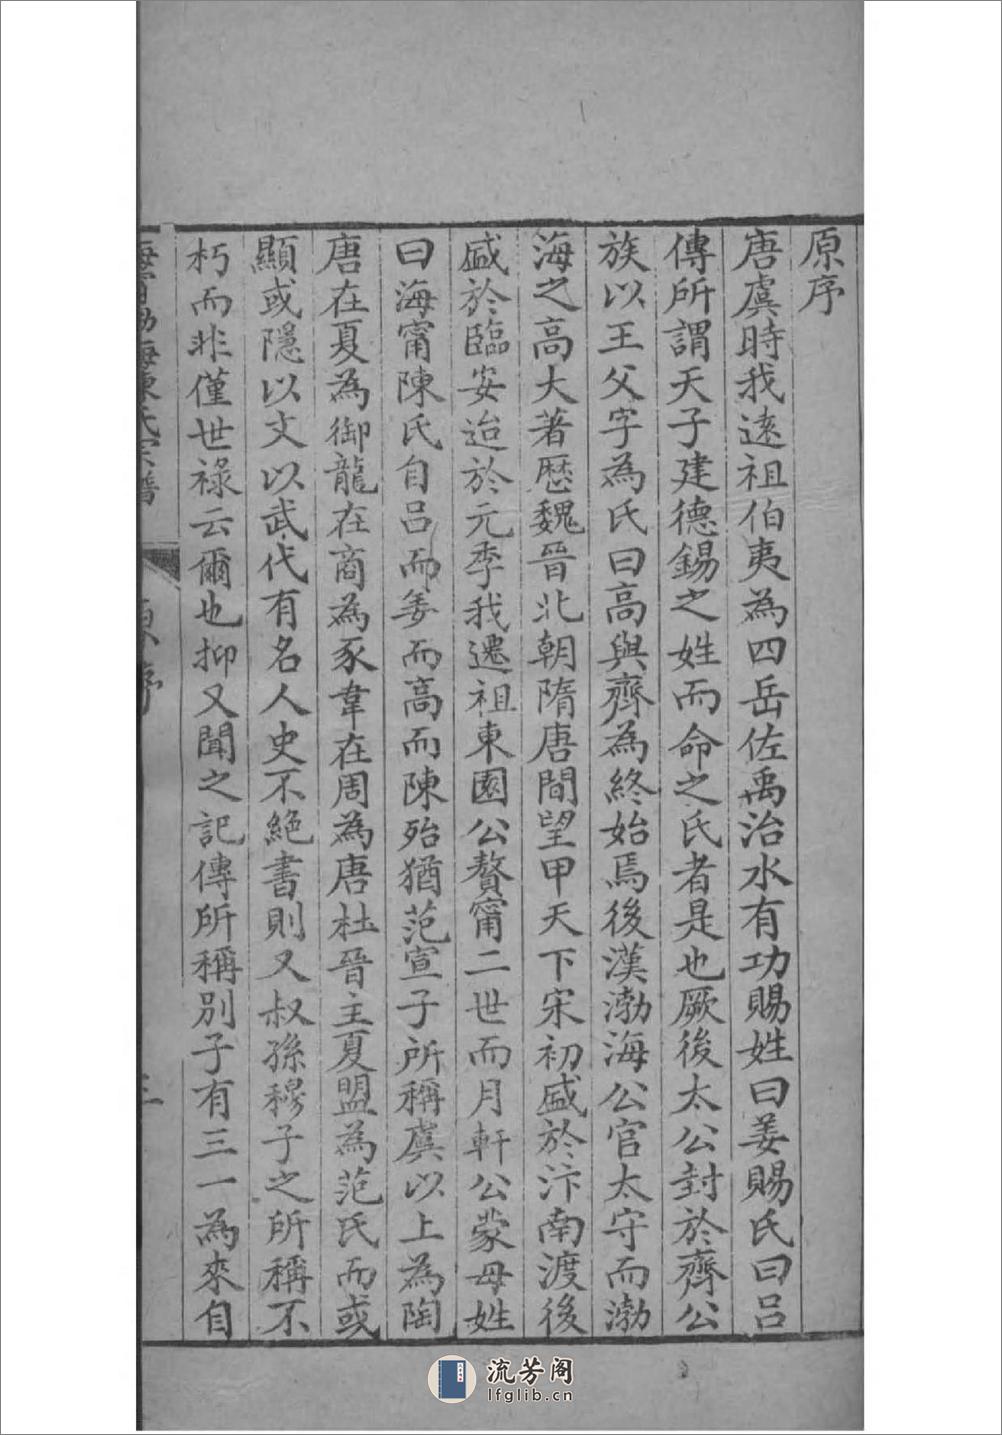 原序
唐虞時我遠祖伯夷為四岳佐禹治水有功賜姓曰姜賜氏曰呂
傳所謂天子建德錫之姓而命之氏者是也厥後太公封於齊公
族以王父字為氏曰高與齊為終始焉後漢渤海公官太守而渤
海之高大著歷魏晉北朝隋唐間望甲天下宋初盛於汴南渡後
盛於臨安迨於元季我遷祖東園公贅甯二世而月軒公蒙母姓
曰海甯陳氏自呂而姜而高而陳殆猶范宣子所稱虞以上為陶
唐在夏為御龍在商為豕韋在周為唐杜晉主夏盟為范氏而或
顯或隱以文以武代有名人史不絕書則又叔孫穆子之所稱不
朽而非僅世祿云爾也抑又聞之記傳所稱別子有三一為來自
海甯渤海陳氏宗譜 原序
流芳阁
lfglib.cn